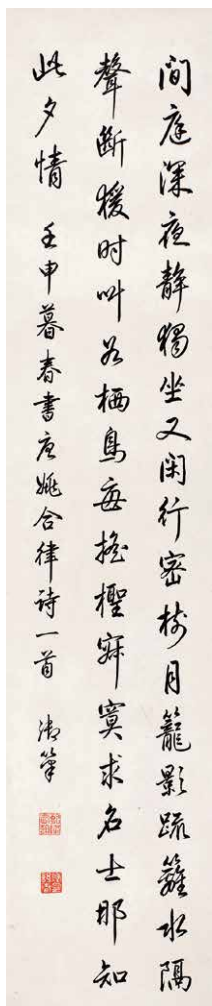 間庭深夜靜獨坐又閑行密樹月籠影疏籬水隔
聲斷猨时叫谷栖鳥每搖檉寂寞求名士那知
此夕情 壬申暮春書唐姚合律詩一首 御筆